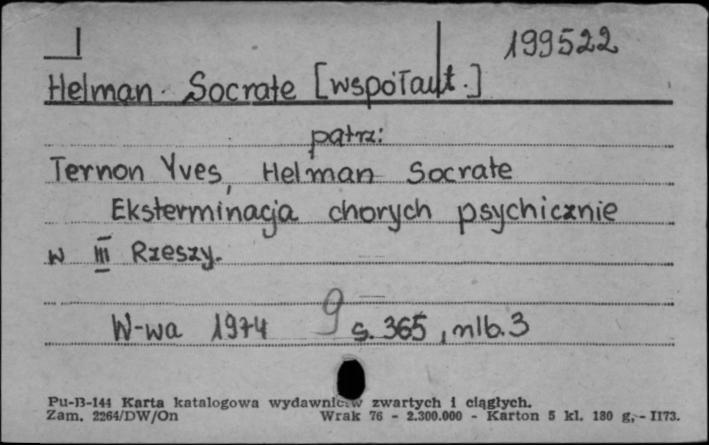 199522
Helman Socrate [współaut.]
patrz:
Ternon Yves, Helman Socrate
Eksterminacja chorych psychicznie
w III Rzeszy.
W-wa 1974 9 s. 365, nlb. 3
Pu-B-144 Karta katalogowa wydawnictw zwartych i ciągłych.
Zam. 2264/DW/On Wrak 76 - 2.300.000 - Karton 5 kl. 180 g, - II73.